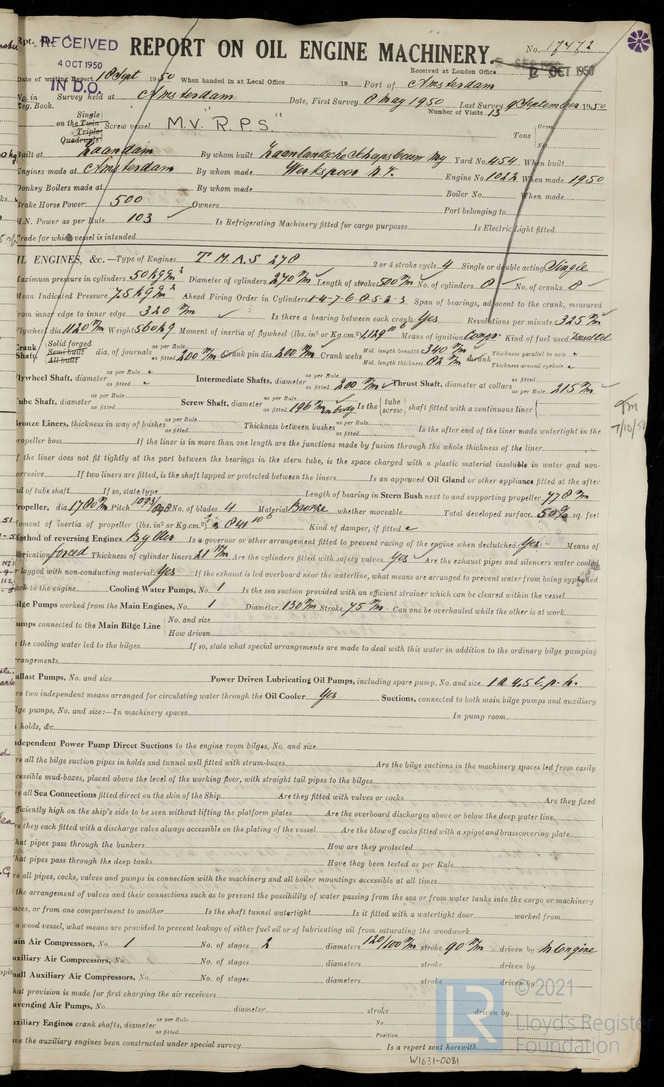 Rpt.
RECEIVED
4 OCT 1950
IN D.O.
REPORT ON OIL ENGINE MACHINERY.
No. 17472
Received at London Office
2 OCT 1950
Date of writing Report 1 Sept 1950 When handed in at Local Office 19 Port of Amsterdam
No. in Survey held at Amsterdam Date, First Survey 8 May 1950 Last Survey 9 September 1950
Reg. Book.
Number of Visits 13
Single
on the Twin Screw vessel M.V. "R.P.S."
Triple
Quadruple
Tons Gross
Net
Built at Zaandam By whom built Zaanlandsche Scheepsbouw My Yard No. 454 When built
Engines made at Amsterdam By whom made Werkspoor N.V. Engine No. 1022 When made 1950
Donkey Boilers made at By whom made Boiler No. When made
Brake Horse Power 500 Owners Port belonging to
M.N. Power as per Rule 103 Is Refrigerating Machinery fitted for cargo purposes Is Electric Light fitted
Trade for which vessel is intended
OIL ENGINES, &c.—Type of Engines T.M.A.S 278 2 or 4 stroke cycle 4 Single or double acting Single
Maximum pressure in cylinders 50 kg/cm² Diameter of cylinders 270 m/m Length of stroke 500 m/m No. of cylinders 8 No. of cranks 8
Mean Indicated Pressure 7.5 kg/cm² Ahead Firing Order in Cylinders 1-4-7-6-8-5-2-3 Span of bearings, adjacent to the crank, measured
from inner edge to inner edge 320 m/m Is there a bearing between each crank Yes Revolutions per minute 325
Flywheel dia. 1120 m/m Weight 560 kg Moment of inertia of flywheel (lbs. in² or Kg.cm.²) Means of ignition Compr. Kind of fuel used
Crank Shaft, Solid forged Semi built All built dia. of journals as per Rule as fitted 200 m/m Crank pin dia. 200 m/m Crank webs Mid. length breadth 340 m/m Mid. length thickness 82 m/m shrunk Thickness parallel to axis Thickness around eyehole
Flywheel Shaft, diameter as per Rule as fitted Intermediate Shafts, diameter as per Rule as fitted 200 m/m Thrust Shaft, diameter at collars as fitted 215 m/m
Tube Shaft, diameter as per Rule as fitted Screw Shaft, diameter as per Rule as fitted 196 m/m Is the tube screw shaft fitted with a continuous liner
7/10/50
Bronze Liners, thickness in way of bushes as per Rule as fitted Thickness between bushes as per Rule as fitted Is the after end of the liner made watertight in the
propeller boss If the liner is in more than one length are the junctions made by fusion through the whole thickness of the liner
If the liner does not fit tightly at the part between the bearings in the stern tube, is the space charged with a plastic material insoluble in water and non-
corrosive If two liners are fitted, is the shaft lapped or protected between the liners Is an approved Oil Gland or other appliance fitted at the after
end of tube shaft If so, state type Length of bearing in Stern Bush next to and supporting propeller 778 m/m
Propeller, dia. 1780 m/m Pitch No. of blades 4 Material Bronze whether moveable Total developed surface 50% sq. feet
Moment of inertia of propeller (lbs. in² or Kg.cm.²) Kind of damper, if fitted
Method of reversing Engines By Oil Is a governor or other arrangement fitted to prevent racing of the engine when declutched Yes Means of
lubrication forced Thickness of cylinder liners 21 m/m Are the cylinders fitted with safety valves Yes Are the exhaust pipes and silencers water cooled
or lagged with non-conducting material Yes If the exhaust is led overboard near the waterline, what means are arranged to prevent water from being syphoned
back to the engine Cooling Water Pumps, No. 1 Is the sea suction provided with an efficient strainer which can be cleared within the vessel
Bilge Pumps worked from the Main Engines, No. 1 Diameter 130 m/m Stroke 75 m/m Can one be overhauled while the other is at work
Pumps connected to the Main Bilge Line No. and size
How driven
Is the cooling water led to the bilges If so, state what special arrangements are made to deal with this water in addition to the ordinary bilge pumping
arrangements
Ballast Pumps, No. and size Power Driven Lubricating Oil Pumps, including spare pump, No. and size
Are two independent means arranged for circulating water through the Oil Cooler Yes Suctions, connected to both main bilge pumps and auxiliary
bilge pumps, No. and size:—In machinery spaces In pump room
In holds, &c.
Independent Power Pump Direct Suctions to the engine room bilges, No. and size
Are all the bilge suction pipes in holds and tunnel well fitted with strum-boxes Are the bilge suctions in the machinery spaces led from easily
accessible mud-boxes, placed above the level of the working floor, with straight tail pipes to the bilges
Are all Sea Connections fitted direct on the skin of the Ship Are they fitted with valves or cocks Are they fixed
sufficiently high on the ship's side to be seen without lifting the platform plates Are the overboard discharges above or below the deep water line
Are they each fitted with a discharge valve always accessible on the plating of the vessel Are the blow off cocks fitted with a spigot and brass covering plate
What pipes pass through the bunkers How are they protected
What pipes pass through the deep tanks Have they been tested as per Rule
Are all pipes, cocks, valves and pumps in connection with the machinery and all boiler mountings accessible at all times
Is the arrangement of valves and their connections such as to prevent the possibility of water passing from the sea or from water tanks into the cargo or machinery
spaces, or from one compartment to another Is the shaft tunnel watertight Is it fitted with a watertight door worked from
If a wood vessel, what means are provided to prevent leakage of either fuel oil or of lubricating oil from saturating the woodwork
Main Air Compressors, No. 1 No. of stages 2 diameters 120/100 m/m stroke 90 m/m driven by M. Engine
Auxiliary Air Compressors, No. No. of stages diameters stroke driven by
Small Auxiliary Air Compressors, No. No. of stages diameters stroke driven by
What provision is made for first charging the air receivers
Scavenging Air Pumps, No. diameter stroke driven by
Auxiliary Engines crank shafts, diameter as per Rule as fitted No. Position
Have the auxiliary engines been constructed under special survey Is a report sent herewith
© 2021
Lloyd's Register
Foundation
LR
W1631-0081